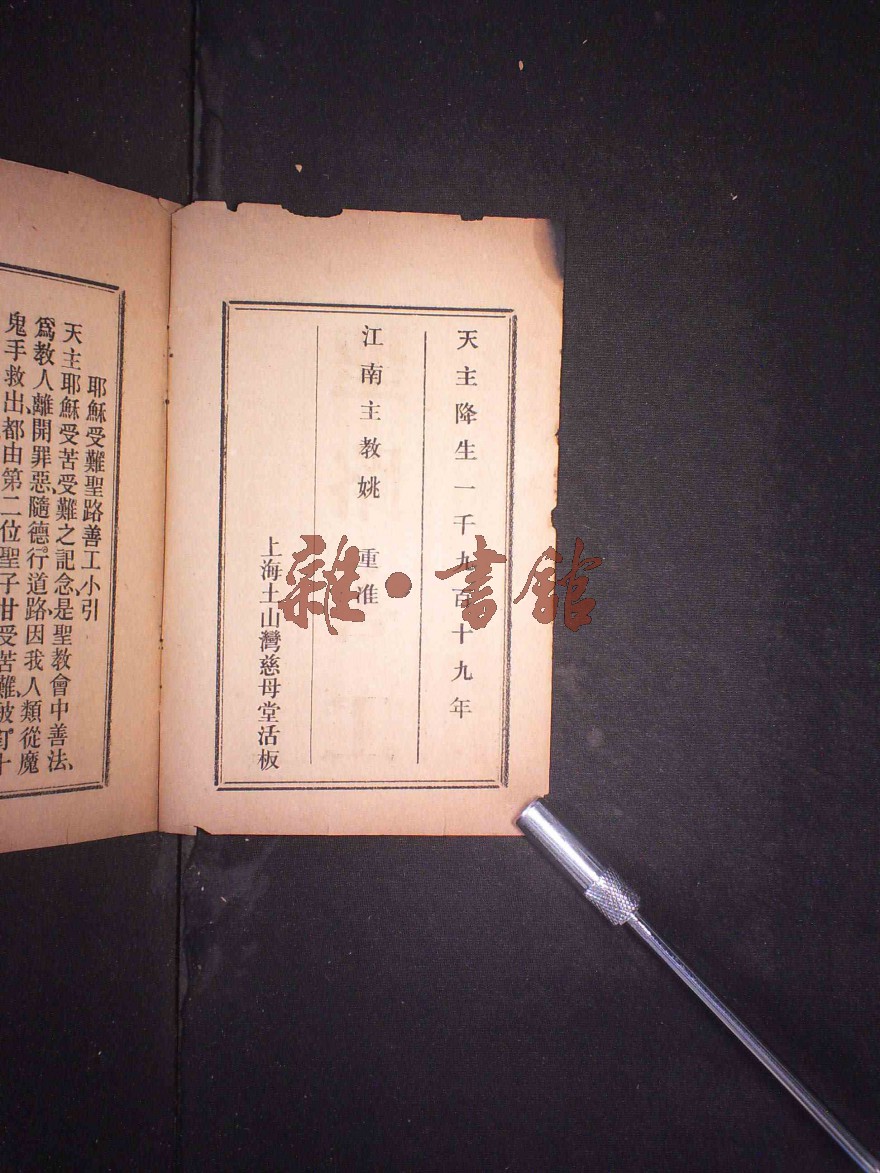 天主降生一千九百十九年
江南主教姚 重准
上海土山灣慈母堂活板
耶穌受難聖路善工小引
天主耶穌受苦受難之記念、是聖教會中善法、
爲教人離開罪惡、隨德行道路、因我人類從魔
鬼手救出、都由第二位聖子甘受苦難、被釘十
雜·書館